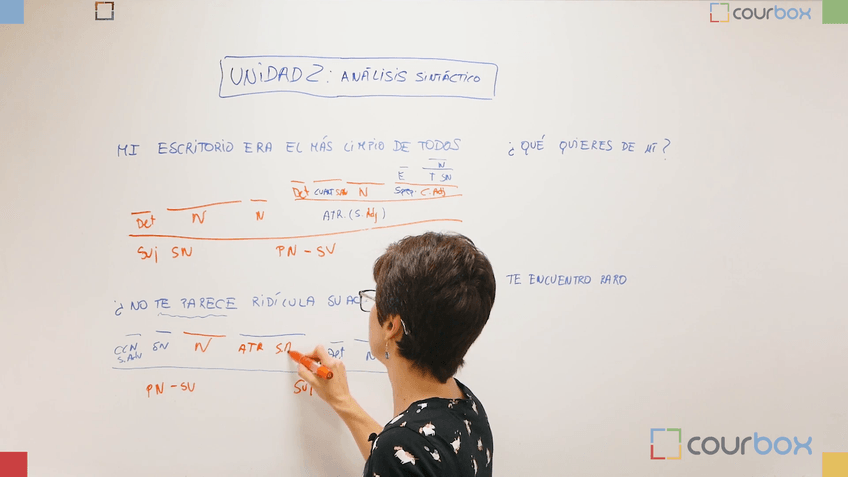 courbox
UNIDAD 2: ANÁLISIS SINTÁCTICO
MI ESCRITORIO ERA EL MÁS LIMPIO DE TODOS
N
E T SN
Det CUANT SAdv N Sprep. C. Adj
Det N N ATR. (S. Adj)
Suj SN PN - SV
¿QUÉ QUIERES DE MÍ?
TE ENCUENTRO RARO
¿NO TE PARECE RIDÍCULA SU AC
CCN SN N ATR Det N
S. Adv
PN - SV Suj
courbox